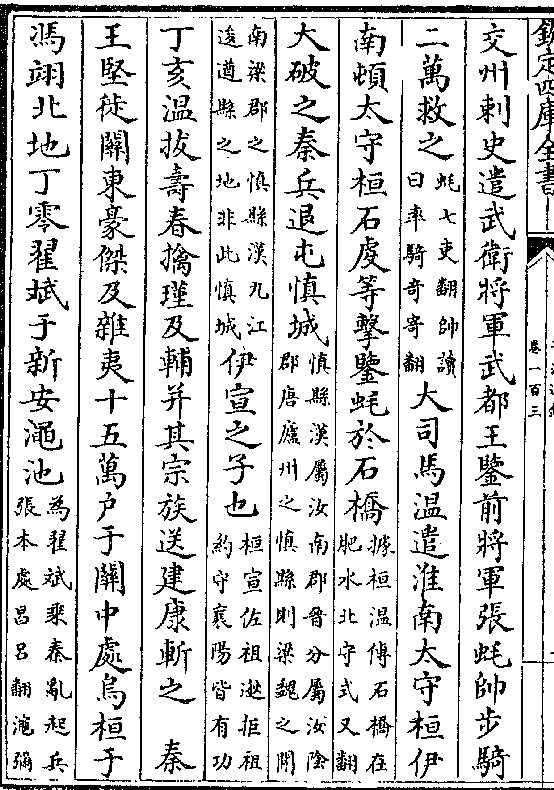 欽定四庫全書
卷一百三
交州刺史遣武衛將軍武都王鑒前將軍張蚝帥步騎
二萬救之蚝七吏翻帥讀曰率騎奇寄翻大司馬溫遣淮南太守桓伊
南頓太守桓石虔等擊鑒蚝於石橋據桓温傳石橋在肥水北守式又翻
大破之秦兵退屯慎城慎縣漢屬汝南郡晉分屬汝隂郡唐廬州之慎縣則梁魏之間
南梁郡之慎縣漢九江逡遒縣之地非此慎城伊宣之子也桓宣佐祖逖拒祖約守襄陽皆有功
丁亥溫拔壽春擒瑾及輔并其宗族送建康斬之 秦
王堅徙關東豪傑及雜夷十五萬户于關中處烏桓于
馮翊北地丁零翟斌于新安澠池為翟斌乘秦亂起兵張本處昌呂翻澠彌